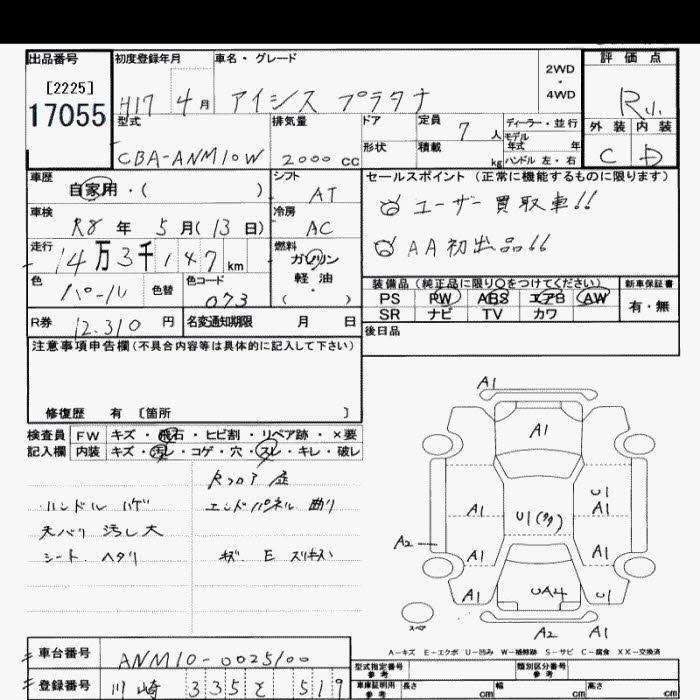 出品番号 初度登録年月 車名・グレード 2WD・4WD 評価点
[2225]
17055
H17 4月 アイシス プラタナ R小
型式 排気量 ドア 定員 7人 ディーラー・並行 外装 内装
モデル年式 年
CBA-ANM10W 2000cc 形状 積載 kg ハンドル 左・右 C D
車歴 自家用・( ) シフト AT セールスポイント(正常に機能するものに限ります)
車検 R8年 5月(13日) 冷房 AC ユーザー買取車!!
走行 14万3千147km 燃料 ガソリン 軽油 ( ) AA初出品!!
色 パール 色替 色コード 073
装備品(純正品に限り○をつけてください) 新車保証書
PS PW ABS エアB AW 有・無
SR ナビ TV カワ
R券 12.310円 名変通知期限 月 日 後日品
注意事項申告欄(不具合内容等は具体的に記入して下さい)
修復歴 有〔箇所 〕
検査員 FW キズ・飛石・ヒビ割・リペア跡・×要
記入欄 内装 キズ・汚レ・コゲ・穴・スレ・キレ・破レ
Rフロア 歪
ハンドル ハゲ エンドパネル 曲り
天バリ 汚レ大
シート ヘタリ
A1
A1
A1 U1 A1
A2 A1 A1
A1 UA4 U1
スペア A2 A1
A-キズ E-エクボ U-凹み W-補修跡 S-サビ C-腐食 XX-交換済
車台番号 ANM10-0025100 型式指定番号 参考 類別区分番号 参考
登録番号 川崎 335 と 519 車庫証明用 参考 長さ cm 幅 cm 高さ cm